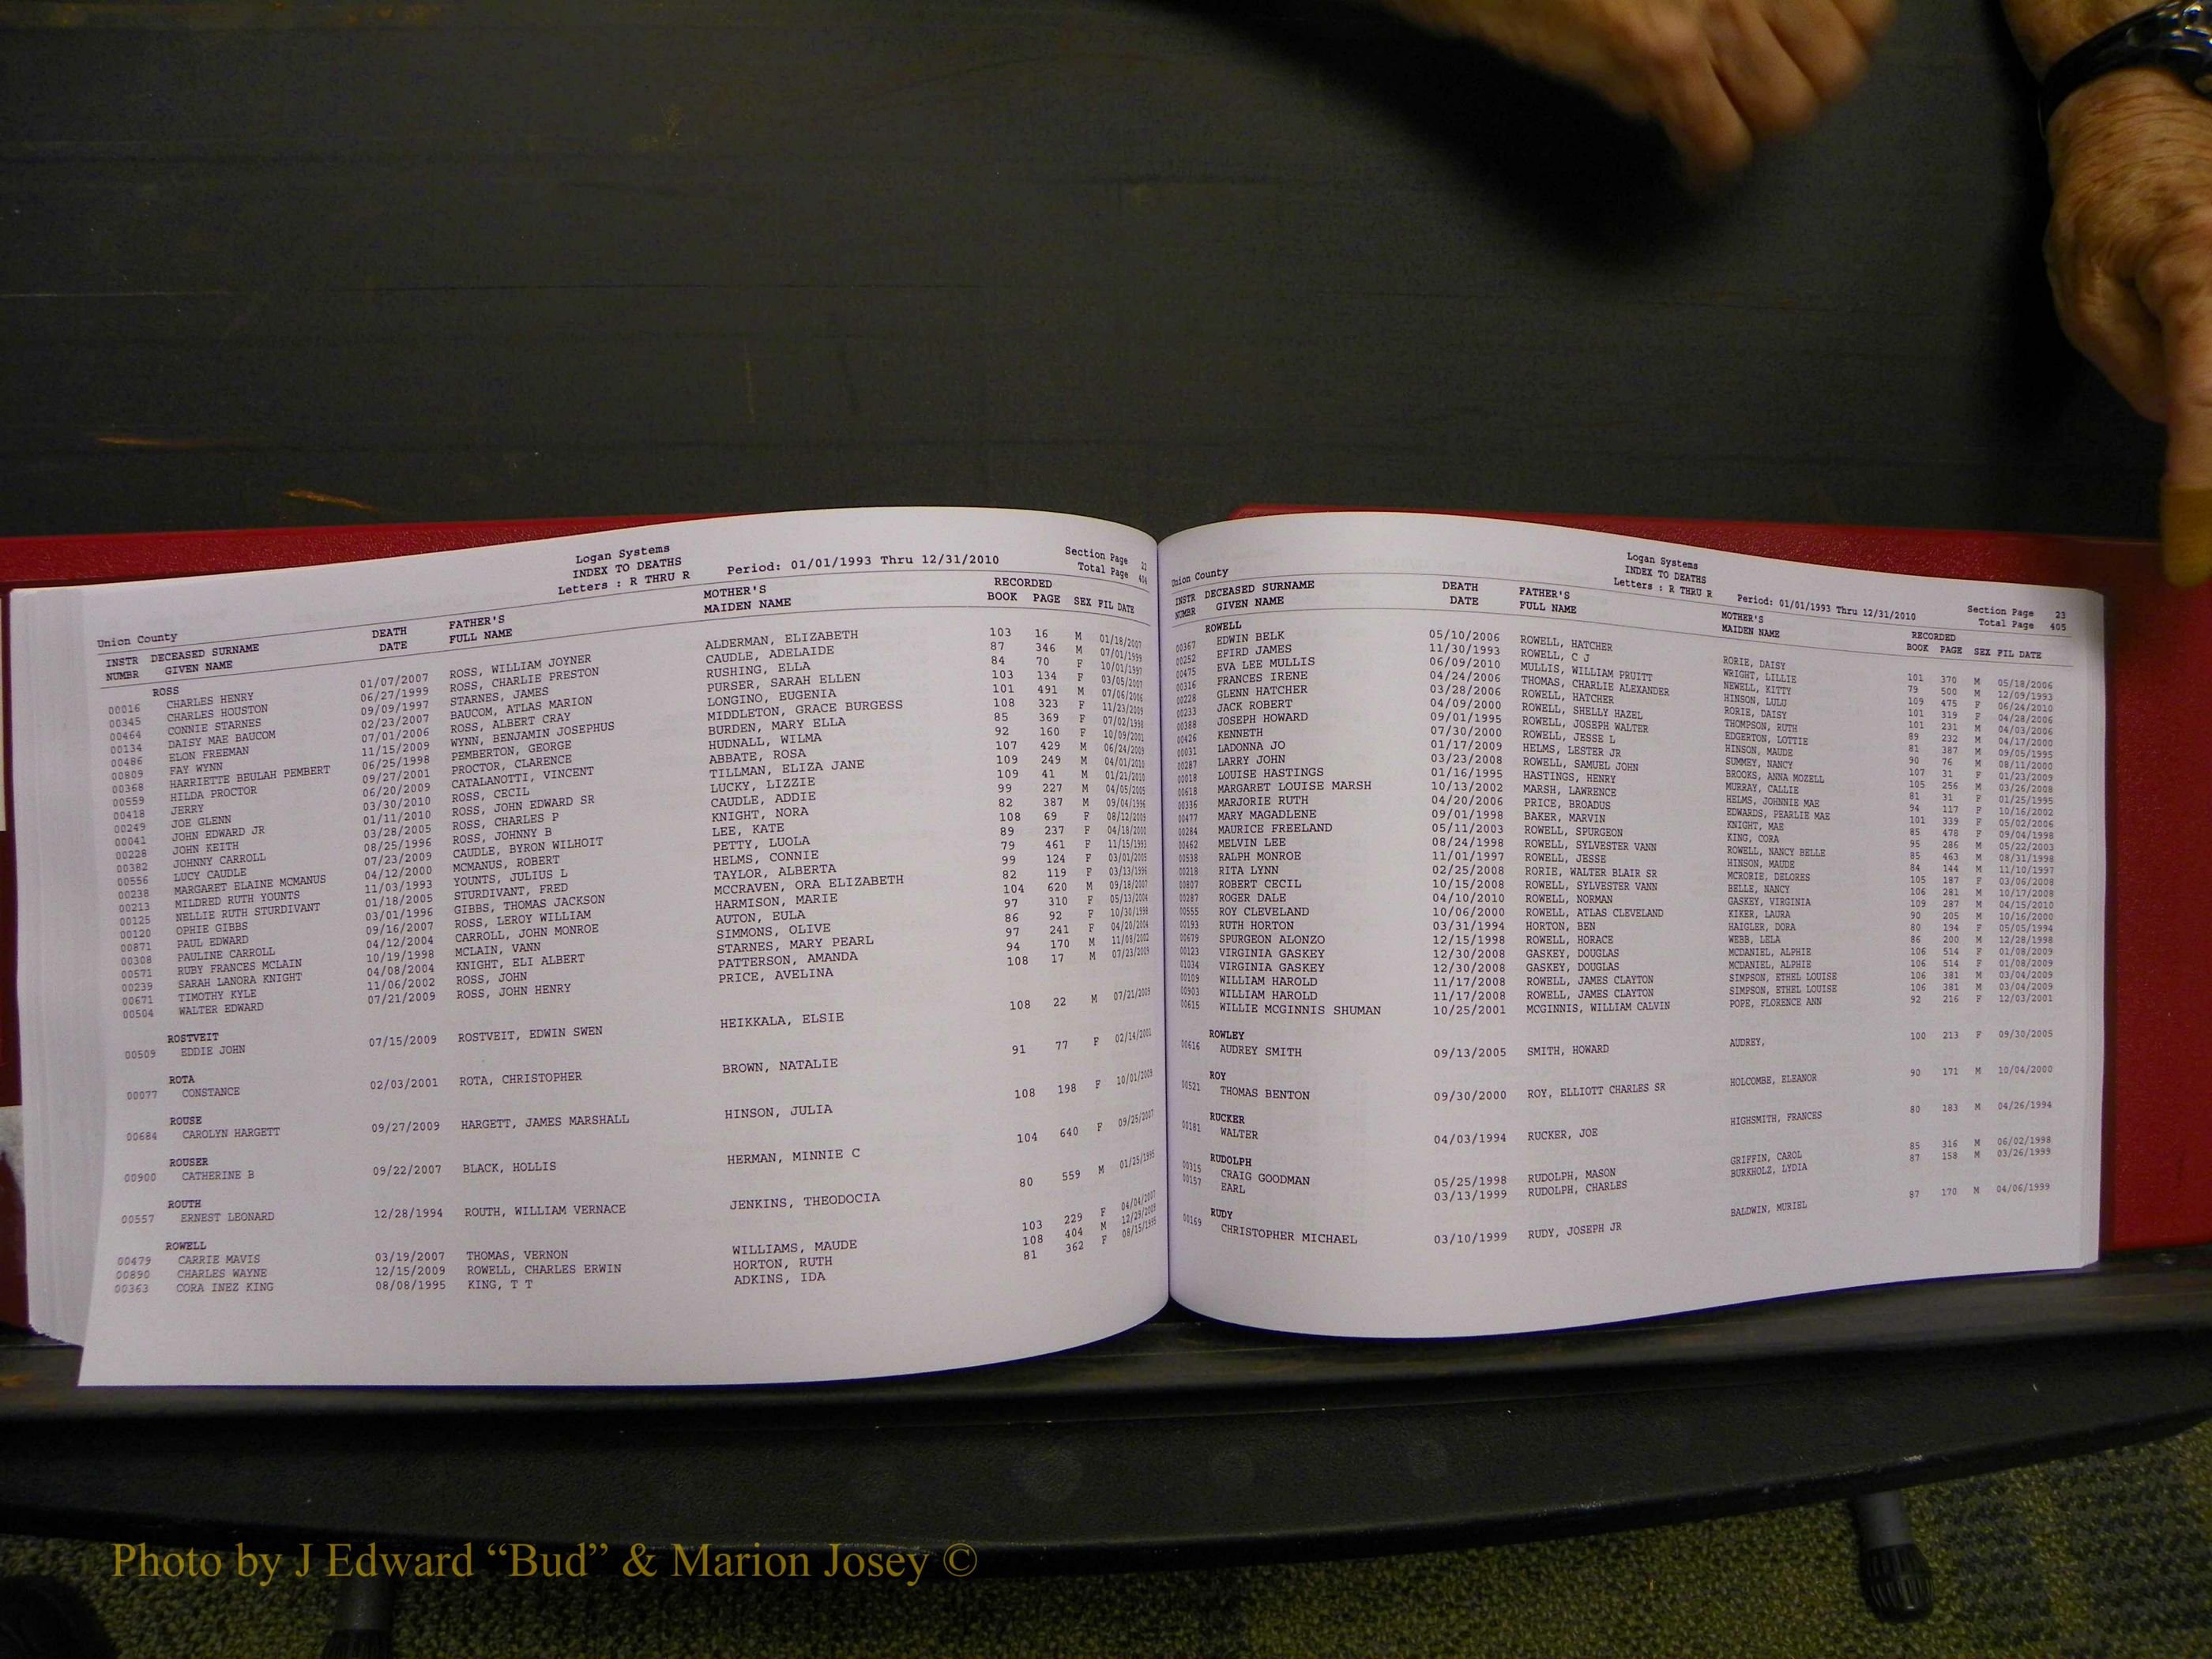 Logan Systems
INDEX TO DEATHS
Letters : R THRU R Period: 01/01/1993 Thru 12/31/2010
Section Page 22
Total Page 404
Union County
INSTR NUMBR DECEASED SURNAME GIVEN NAME DEATH DATE FATHER'S FULL NAME MOTHER'S MAIDEN NAME RECORDED BOOK PAGE SEX FIL DATE
ROSS
00016 CHARLES HENRY 01/07/2007 ROSS, WILLIAM JOYNER ALDERMAN, ELIZABETH 103 16 M 01/18/2007
00345 CHARLES HOUSTON 06/27/1999 ROSS, CHARLIE PRESTON CAUDLE, ADELAIDE 87 346 M 07/01/1999
00464 CONNIE STARNES 09/09/1997 STARNES, JAMES RUSHING, ELLA 84 70 F 10/01/1997
00134 DAISY MAE BAUCOM 02/23/2007 BAUCOM, ATLAS MARION PURSER, SARAH ELLEN 103 134 F 03/05/2007
00486 ELON FREEMAN 07/01/2006 ROSS, ALBERT CRAY LONGINO, EUGENIA 101 491 M 07/06/2006
00809 FAY WYNN 11/15/2009 WYNN, BENJAMIN JOSEPHUS MIDDLETON, GRACE BURGESS 108 323 F 11/23/2009
00368 HARRIETTE BEULAH PEMBERT 06/25/1998 PEMBERTON, GEORGE BURDEN, MARY ELLA 85 369 F 07/02/1998
00559 HILDA PROCTOR 09/27/2001 PROCTOR, CLARENCE HUDNALL, WILMA 92 160 F 10/09/2001
00418 JERRY 06/20/2009 CATALANOTTI, VINCENT ABBATE, ROSA 107 429 M 06/24/2009
00249 JOE GLENN 03/30/2010 ROSS, CECIL TILLMAN, ELIZA JANE 109 249 M 04/01/2010
00041 JOHN EDWARD JR 01/11/2010 ROSS, JOHN EDWARD SR LUCKY, LIZZIE 109 41 M 01/21/2010
00228 JOHN KEITH 03/28/2005 ROSS, CHARLES P CAUDLE, ADDIE 99 227 M 04/05/2005
00382 JOHNNY CARROLL 08/25/1996 ROSS, JOHNNY B KNIGHT, NORA 82 387 M 09/04/1996
00556 LUCY CAUDLE 07/23/2009 CAUDLE, BYRON WILHOIT LEE, KATE 108 69 F 08/12/2009
00238 MARGARET ELAINE MCMANUS 04/12/2000 MCMANUS, ROBERT PETTY, LUOLA 89 237 F 04/18/2000
00213 MILDRED RUTH YOUNTS 11/03/1993 YOUNTS, JULIUS L HELMS, CONNIE 79 461 F 11/15/1993
00125 NELLIE RUTH STURDIVANT 01/18/2005 STURDIVANT, FRED TAYLOR, ALBERTA 99 124 F 03/01/2005
00120 OPHIE GIBBS 03/01/1996 GIBBS, THOMAS JACKSON MCCRAVEN, ORA ELIZABETH 82 119 F 03/13/1996
00871 PAUL EDWARD 09/16/2007 ROSS, LEROY WILLIAM HARMISON, MARIE 104 620 M 09/18/2007
00308 PAULINE CARROLL 04/12/2004 CARROLL, JOHN MONROE AUTON, EULA 97 310 F 05/13/2004
00571 RUBY FRANCES MCLAIN 10/19/1998 MCLAIN, VANN SIMMONS, OLIVE 86 92 F 10/30/1998
00239 SARAH LANORA KNIGHT 04/08/2004 KNIGHT, ELI ALBERT STARNES, MARY PEARL 97 241 F 04/20/2004
00671 TIMOTHY KYLE 11/06/2002 ROSS, JOHN PATTERSON, AMANDA 94 170 M 11/08/2002
00504 WALTER EDWARD 07/21/2009 ROSS, JOHN HENRY PRICE, AVELINA 108 17 M 07/23/2009
ROSTVEIT
00509 EDDIE JOHN 07/15/2009 ROSTVEIT, EDWIN SWEN HEIKKALA, ELSIE 108 22 M 07/21/2009
ROTA
00077 CONSTANCE 02/03/2001 ROTA, CHRISTOPHER BROWN, NATALIE 91 77 F 02/14/2001
ROUSE
00684 CAROLYN HARGETT 09/27/2009 HARGETT, JAMES MARSHALL HINSON, JULIA 108 198 F 10/01/2009
ROUSER
00900 CATHERINE B 09/22/2007 BLACK, HOLLIS HERMAN, MINNIE C 104 640 F 09/25/2007
ROUTH
00557 ERNEST LEONARD 12/28/1994 ROUTH, WILLIAM VERNACE JENKINS, THEODOCIA 80 559 M 01/25/1995
ROWELL
00479 CARRIE MAVIS 03/19/2007 THOMAS, VERNON WILLIAMS, MAUDE 103 229 F 04/04/2007
00890 CHARLES WAYNE 12/15/2009 ROWELL, CHARLES ERWIN HORTON, RUTH 108 404 M 12/29/2009
00363 CORA INEZ KING 08/08/1995 KING, T T ADKINS, IDA 81 362 F 08/15/1995
Logan Systems
INDEX TO DEATHS
Letters : R THRU R Period: 01/01/1993 Thru 12/31/2010
Section Page 23
Total Page 405
Union County
INSTR NUMBR DECEASED SURNAME GIVEN NAME DEATH DATE FATHER'S FULL NAME MOTHER'S MAIDEN NAME RECORDED BOOK PAGE SEX FIL DATE
ROWELL
00367 EDWIN BELK 05/10/2006 ROWELL, HATCHER RORIE, DAISY 101 370 M 05/18/2006
00252 EFIRD JAMES 11/30/1993 ROWELL, C J WRIGHT, LILLIE 79 500 M 12/09/1993
00475 EVA LEE MULLIS 06/09/2010 MULLIS, WILLIAM PRUITT NEWELL, KITTY 109 475 F 06/24/2010
00316 FRANCES IRENE 04/24/2006 THOMAS, CHARLIE ALEXANDER HINSON, LULU 101 319 F 04/28/2006
00228 GLENN HATCHER 03/28/2006 ROWELL, HATCHER RORIE, DAISY 101 231 M 04/03/2006
00233 JACK ROBERT 04/09/2000 ROWELL, SHELLY HAZEL THOMPSON, RUTH 89 232 M 04/17/2000
00388 JOSEPH HOWARD 09/01/1995 ROWELL, JOSEPH WALTER EDGERTON, LOTTIE 81 387 M 09/05/1995
00426 KENNETH 07/30/2000 ROWELL, JESSE L HINSON, MAUDE 90 76 M 08/11/2000
00031 LADONNA JO 01/17/2009 HELMS, LESTER JR SUMMEY, NANCY 107 31 F 01/23/2009
00287 LARRY JOHN 03/23/2008 ROWELL, SAMUEL JOHN BROOKS, ANNA MOZELL 105 256 M 03/26/2008
00018 LOUISE HASTINGS 01/16/1995 HASTINGS, HENRY MURRAY, CALLIE 81 31 F 01/25/1995
00618 MARGARET LOUISE MARSH 10/13/2002 MARSH, LAWRENCE HELMS, JOHNNIE MAE 94 117 F 10/16/2002
00336 MARJORIE RUTH 04/20/2006 PRICE, BROADUS EDWARDS, PEARLIE MAE 101 339 F 05/02/2006
00477 MARY MAGADLENE 09/01/1998 BAKER, MARVIN KNIGHT, MAE 85 478 F 09/04/1998
00284 MAURICE FREELAND 05/11/2003 ROWELL, SPURGEON KING, CORA 95 286 M 05/22/2003
00462 MELVIN LEE 08/24/1998 ROWELL, SYLVESTER VANN ROWELL, NANCY BELLE 85 463 M 08/31/1998
00538 RALPH MONROE 11/01/1997 ROWELL, JESSE HINSON, MAUDE 84 144 M 11/10/1997
00218 RITA LYNN 02/25/2008 RORIE, WALTER BLAIR SR MCRORIE, DELORES 105 187 F 03/06/2008
00807 ROBERT CECIL 10/15/2008 ROWELL, SYLVESTER VANN BELLE, NANCY 106 281 M 10/17/2008
00287 ROGER DALE 04/10/2010 ROWELL, NORMAN GASKEY, VIRGINIA 109 287 M 04/15/2010
00555 ROY CLEVELAND 10/06/2000 ROWELL, ATLAS CLEVELAND KIKER, LAURA 90 205 M 10/16/2000
00193 RUTH HORTON 03/31/1994 HORTON, BEN HAIGLER, DORA 80 194 F 05/05/1994
00679 SPURGEON ALONZO 12/15/1998 ROWELL, HORACE WEBB, LELA 86 200 M 12/28/1998
00123 VIRGINIA GASKEY 12/30/2008 GASKEY, DOUGLAS MCDANIEL, ALPHIE 106 514 F 01/08/2009
01034 VIRGINIA GASKEY 12/30/2008 GASKEY, DOUGLAS MCDANIEL, ALPHIE 106 514 F 01/08/2009
00109 WILLIAM HAROLD 11/17/2008 ROWELL, JAMES CLAYTON SIMPSON, ETHEL LOUISE 106 381 M 03/04/2009
00903 WILLIAM HAROLD 11/17/2008 ROWELL, JAMES CLAYTON SIMPSON, ETHEL LOUISE 106 381 M 03/04/2009
00615 WILLIE MCGINNIS SHUMAN 10/25/2001 MCGINNIS, WILLIAM CALVIN POPE, FLORENCE ANN 92 216 F 12/03/2001
ROWLEY
00616 AUDREY SMITH 09/13/2005 SMITH, HOWARD AUDREY, 100 213 F 09/30/2005
ROY
00521 THOMAS BENTON 09/30/2000 ROY, ELLIOTT CHARLES SR HOLCOMBE, ELEANOR 90 171 M 10/04/2000
RUCKER
00181 WALTER 04/03/1994 RUCKER, JOE HIGHSMITH, FRANCES 80 183 M 04/26/1994
RUDOLPH
00315 CRAIG GOODMAN 05/25/1998 RUDOLPH, MASON GRIFFIN, CAROL 85 316 M 06/02/1998
00157 EARL 03/13/1999 RUDOLPH, CHARLES BURKHOLZ, LYDIA 87 158 M 03/26/1999
RUDY
00169 CHRISTOPHER MICHAEL 03/10/1999 RUDY, JOSEPH JR BALDWIN, MURIEL 87 170 M 04/06/1999
Photo by J Edward “Bud” & Marion Josey ©